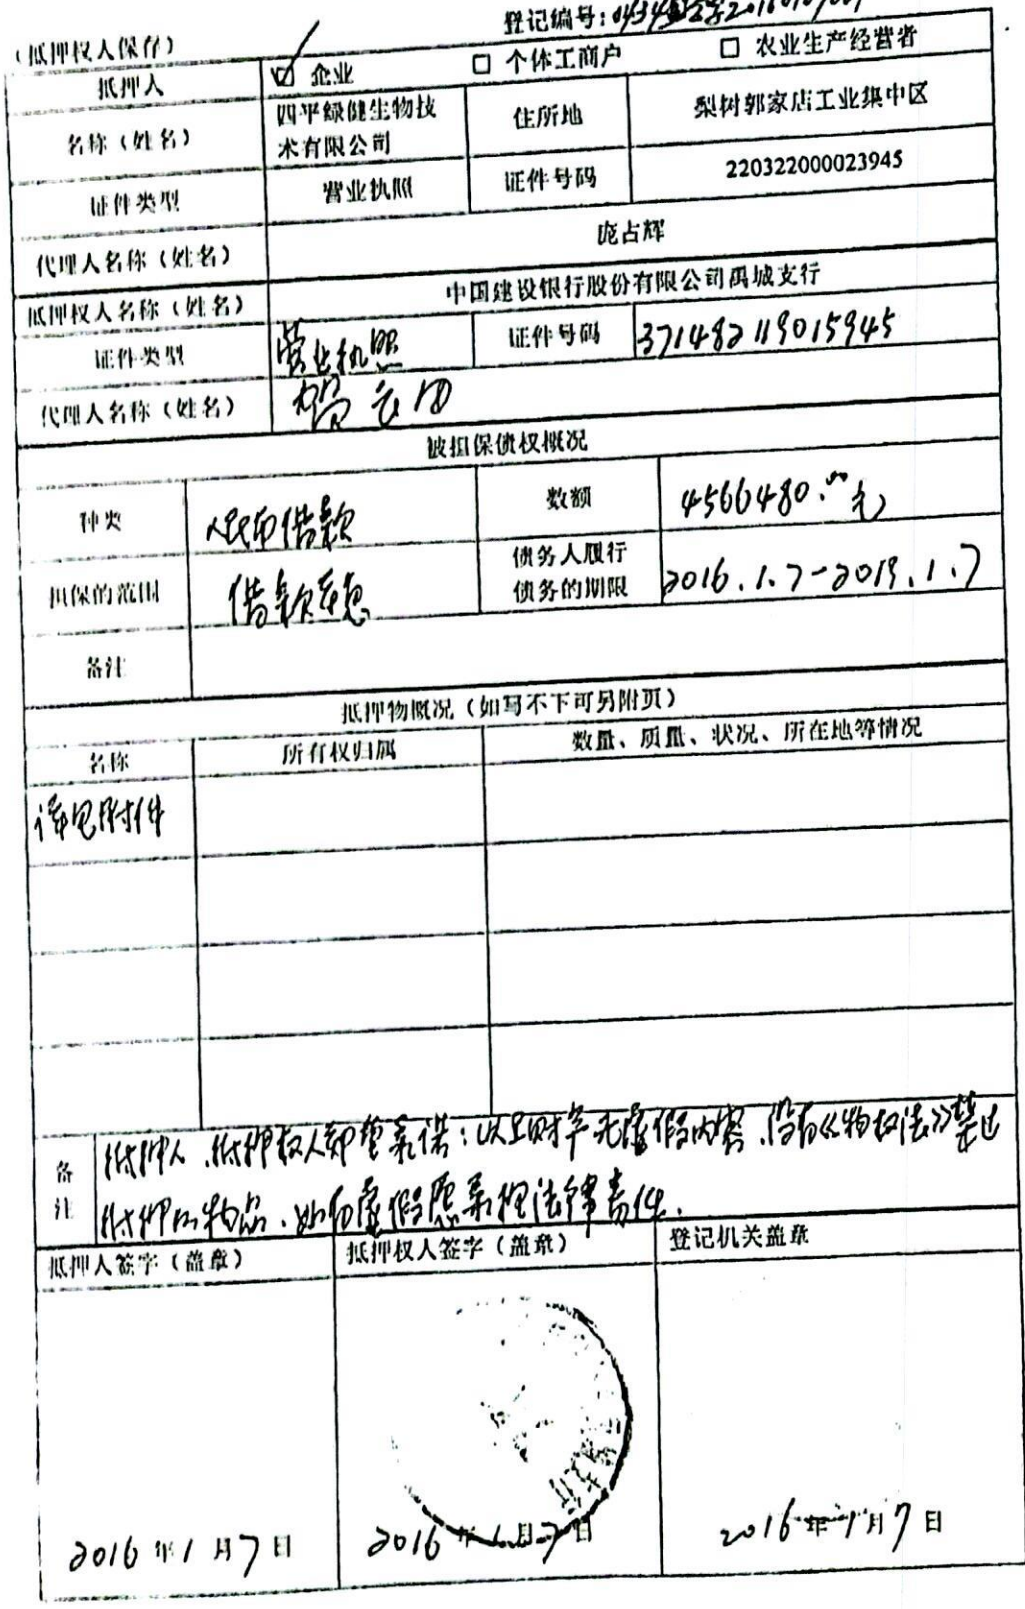 登记编号:
(抵押权人保存)
抵押人 ☑ 企业 □ 个体工商户 □ 农业生产经营者
名称(姓名) 四平绿健生物技术有限公司 住所地 梨树郭家店工业集中区
证件类型 营业执照 证件号码 220322000023945
代理人名称(姓名) 庞占辉
抵押权人名称(姓名) 中国建设银行股份有限公司禹城支行
证件类型 营业执照 证件号码 371482119015945
代理人名称(姓名)
被担保债权概况
种类 人民币借款 数额 4566480.00元
担保的范围 借款本息 债务人履行债务的期限 2016.1.7-2019.1.7
备注
抵押物概况(如写不下可另附页)
名称 所有权归属 数量、质量、状况、所在地等情况
详见附件
备注 抵押人、抵押权人郑重承诺:以上财产无虚假内容、没有《物权法》禁止
抵押的物品、如有虚假愿承担法律责任.
抵押人签字(盖章) 抵押权人签字(盖章) 登记机关盖章
2016年1月7日 2016年1月7日 2016年1月7日